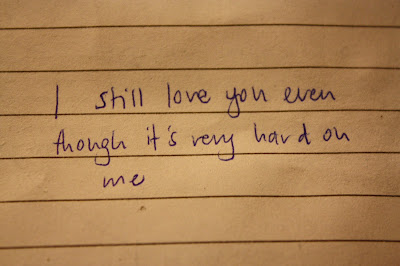 I still love you even
though it's very hard on
me